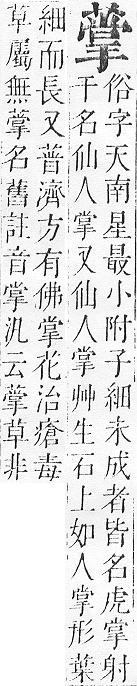 ⿱艹掌
俗字天南星最小附子細未成者皆名虎掌射
干名仙人掌又仙人掌艸生石上如人掌形葉
細而長又普濟方有佛掌花治瘡毒
草屬無⿱艹掌名舊註音掌汎云⿱艹掌草非